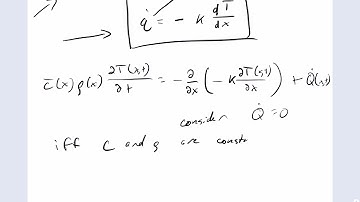 q̇ = - K dT/dx
c(x) ρ(x) ∂T(x,t)/∂t = - ∂/∂x (-K ∂T(x,t)/∂x) + Q̇(x,t)
consider Q̇ = 0
iff c and ρ are consta